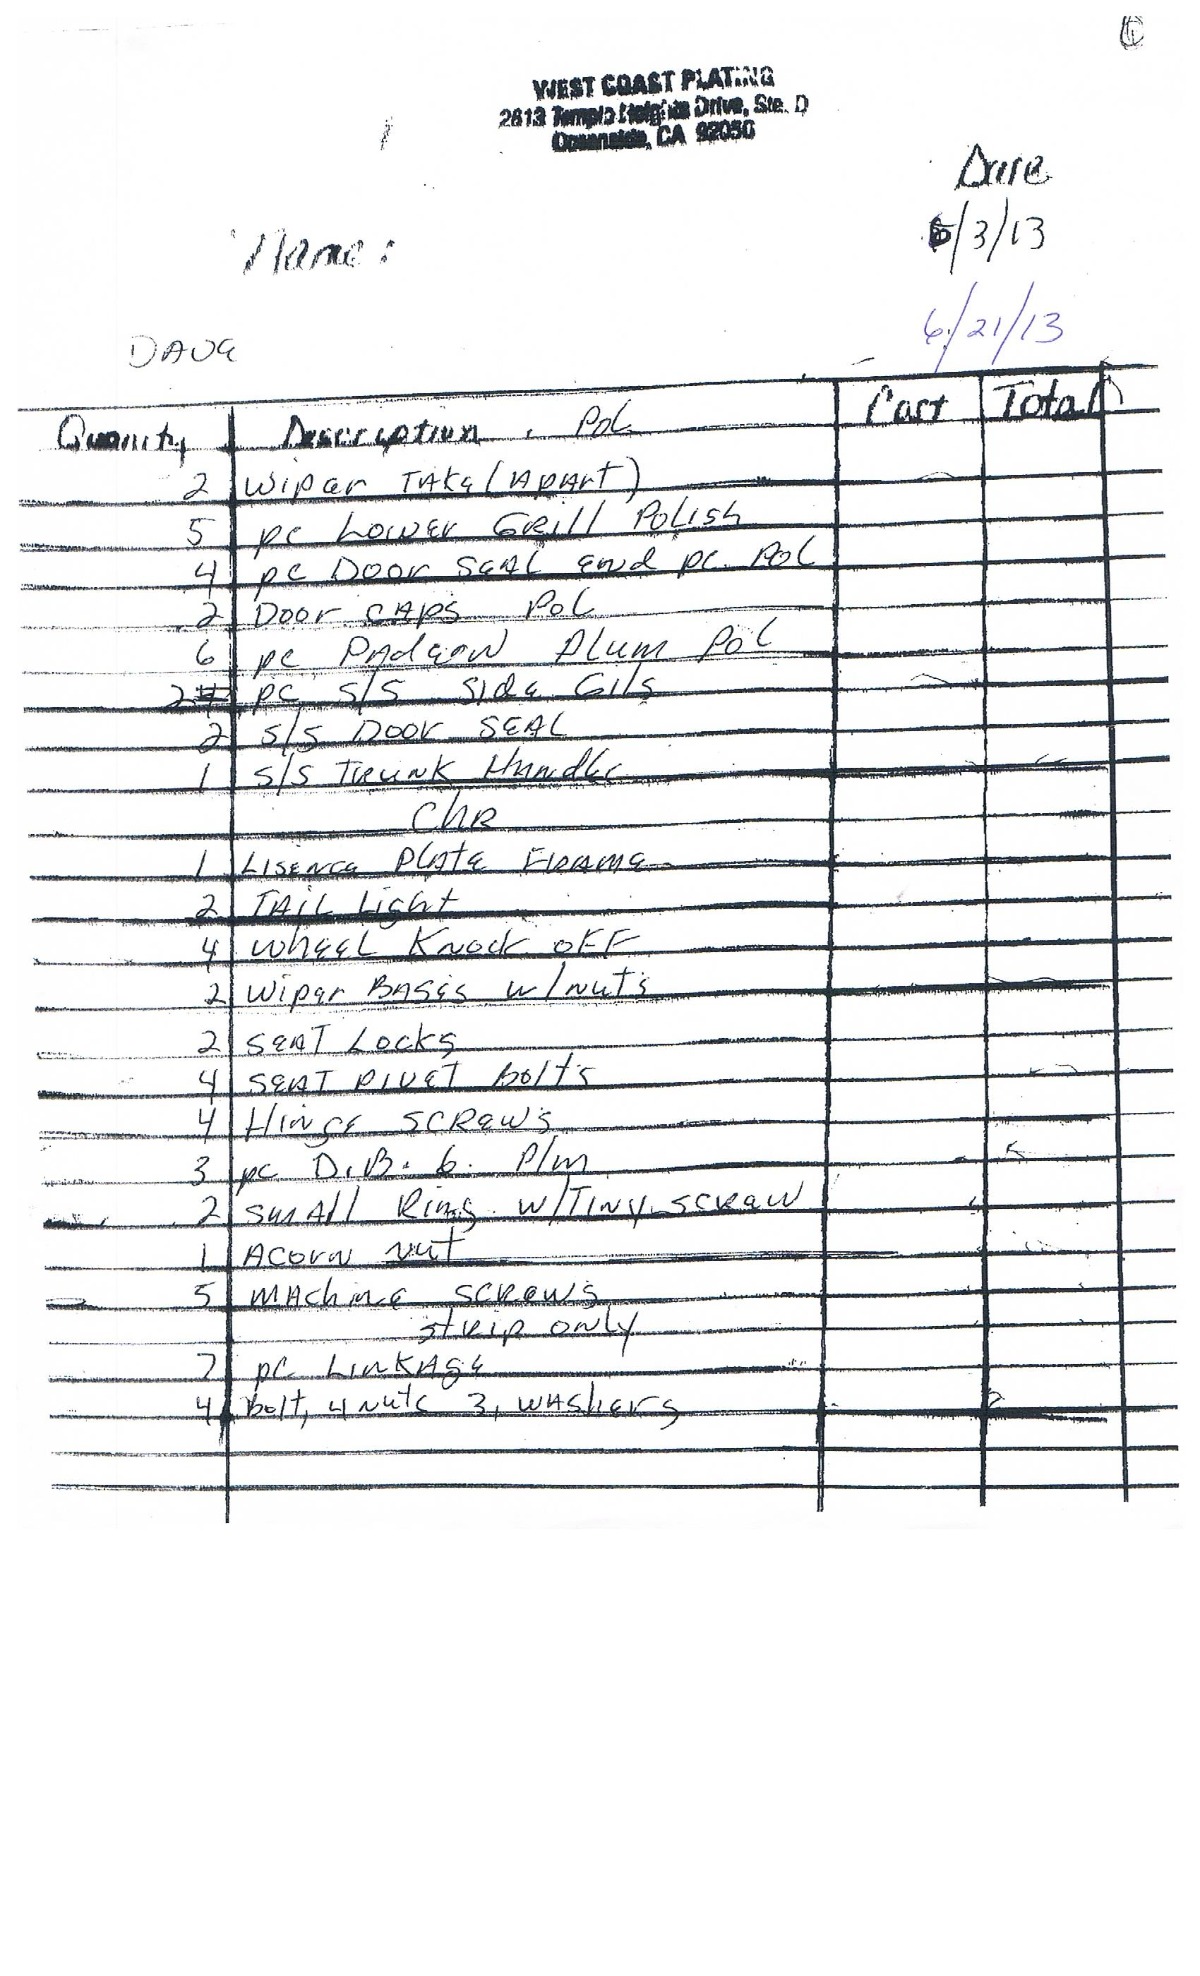 WEST COAST PLATING
2613 Temple Heights Drive, Ste. D
Oceanside, CA 92056
Date
6/3/13
Name:
6/21/13
DAVE
Quanity Description Pol Cost Total
2 Wiper TAKe (APArt)
5 pc Lower Grill Polish
4 pc Door SeAL end pc. Pol
2 Door CAPS Pol
6 pc Plum Pol
2 pc S/S Side Gils
2 S/S Door SEAL
1 S/S Trunk Handle
ChR
1 Lisence Plate FRAME
2 TAIL Light
4 Wheel Knock OFF
2 Wiper BASes w/nuts
2 SeAT Locks
4 SeAT PIVET Bolts
4 Hinge SCRews
3 pc D.B. 6. P/m
2 SmAll Ring w/Tiny screw
1 Acorn nut
5 MAchine SCRews
Strip only
7 pc LinKAge
4 Bolt, 4 nuts 3, WAShers